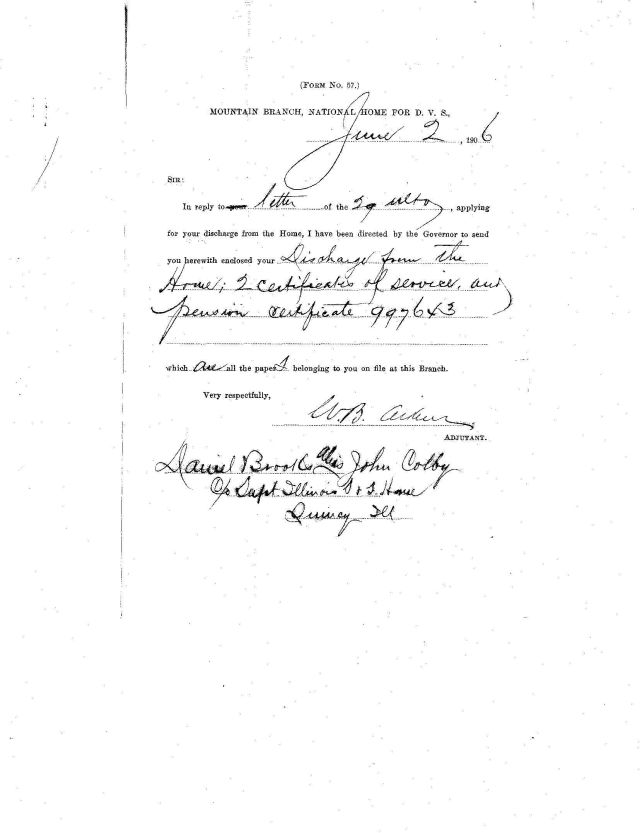 (FORM NO. 57.)
MOUNTAIN BRANCH, NATIONAL HOME FOR D. V. S.,
June 2, 1906
SIR:
In reply to your letter of the 29 ulto, applying
for your discharge from the Home, I have been directed by the Governor to send
you herewith enclosed your Discharge from the
Home; 2 certificates of service, and
pension certificate 997643
which are all the papers belonging to you on file at this Branch.
Very respectfully,
W.B.
ADJUTANT.
Daniel Brooks alias John Colby
c/o Supt. Illinois S & S. Home
Quincy Ill